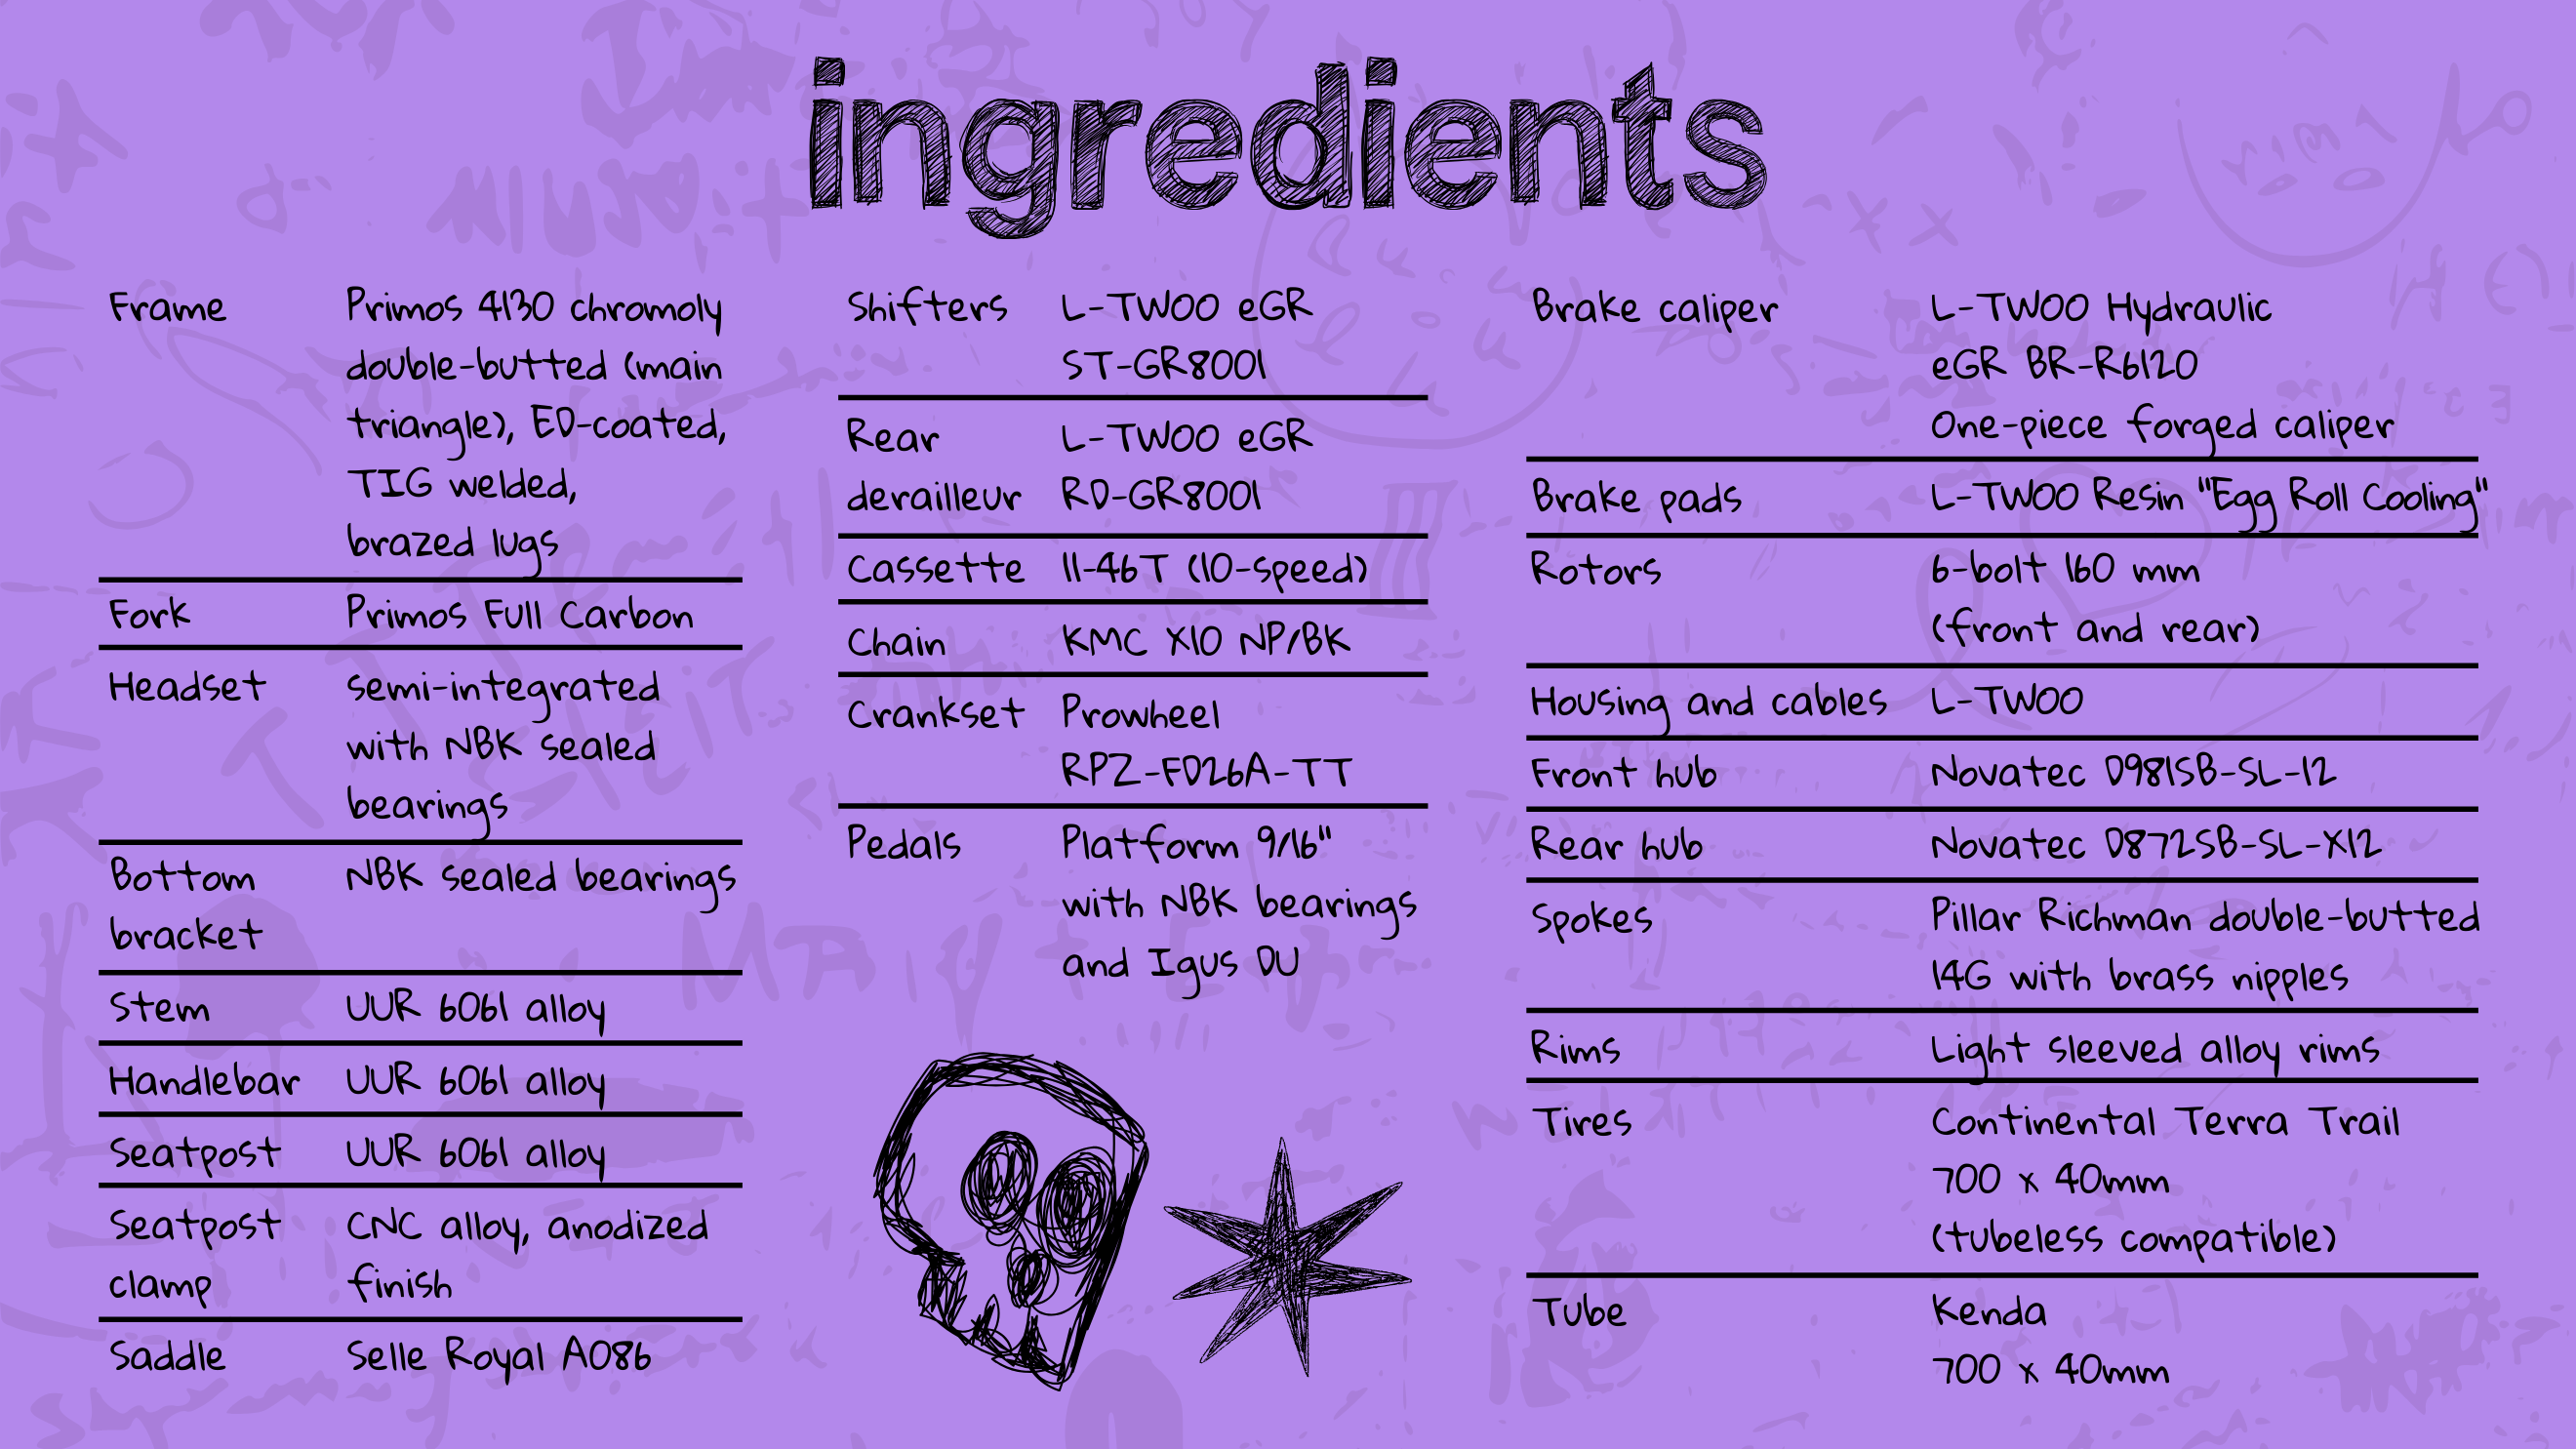 ingredients
Frame Primos 4130 chromoly
double-butted (main
triangle), ED-coated,
TIG welded,
brazed lugs
Fork Primos Full Carbon
Headset semi-integrated
with NBK sealed
bearings
Bottom NBK sealed bearings
bracket
Stem UUR 6061 alloy
Handlebar UUR 6061 alloy
Seatpost UUR 6061 alloy
Seatpost CNC alloy, anodized
clamp finish
Saddle Selle Royal A086
Shifters L-TWOO eGR
ST-GR8001
Rear L-TWOO eGR
derailleur RD-GR8001
Cassette 11-46T (10-speed)
Chain KMC X10 NP/BK
Crankset Prowheel
RPZ-FD26A-TT
Pedals Platform 9/16"
with NBK bearings
and Igus DU
Brake caliper L-TWOO Hydraulic
eGR BR-R6120
One-piece forged caliper
Brake pads L-TWOO Resin "Egg Roll Cooling"
Rotors 6-bolt 160 mm
(front and rear)
Housing and cables L-TWOO
Front hub Novatec D981SB-SL-12
Rear hub Novatec D872SB-SL-X12
Spokes Pillar Richman double-butted
14G with brass nipples
Rims Light sleeved alloy rims
Tires Continental Terra Trail
700 x 40mm
(tubeless compatible)
Tube Kenda
700 x 40mm